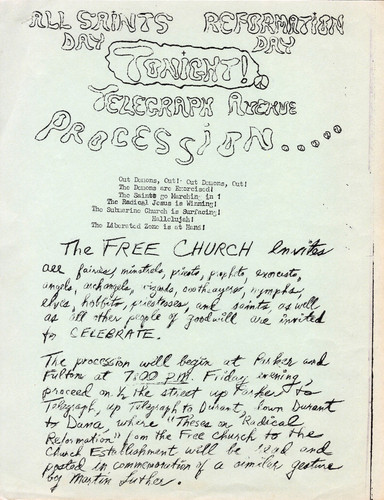 ALL SAINTS REFORMATION
DAY DAY
TONIGHT!
TELEGRAPH AVENUE
PROCESSION.....
Out Demons, Out! Out Demons, Out!
The Demons are Exorcised!
The Saints go Marching in!
The Radical Jesus is Winning!
The Submarine Church is Surfacing!
Hallelujah!
The Liberated Zone is at Hand!
The FREE CHURCH invites
all fairies, minstrels, pirates, prophets, exorcists,
angels, archangels, wizards, soothsayers, nymphs,
elves, hobbits, priestesses, and saints, as well
as all other people of goodwill are invited
to CELEBRATE.
The procession will begin at Parker and
Fulton at 7:00 P.M. Friday evening,
proceed on ½ the street up Parker to
Telegraph, up Telegraph to Durant, down Durant
to Dana, where "Theses on Radical
Reformation" from the Free Church to the
Church Establishment will be read and
posted in commemoration of a similar gesture
by Martin Luther.